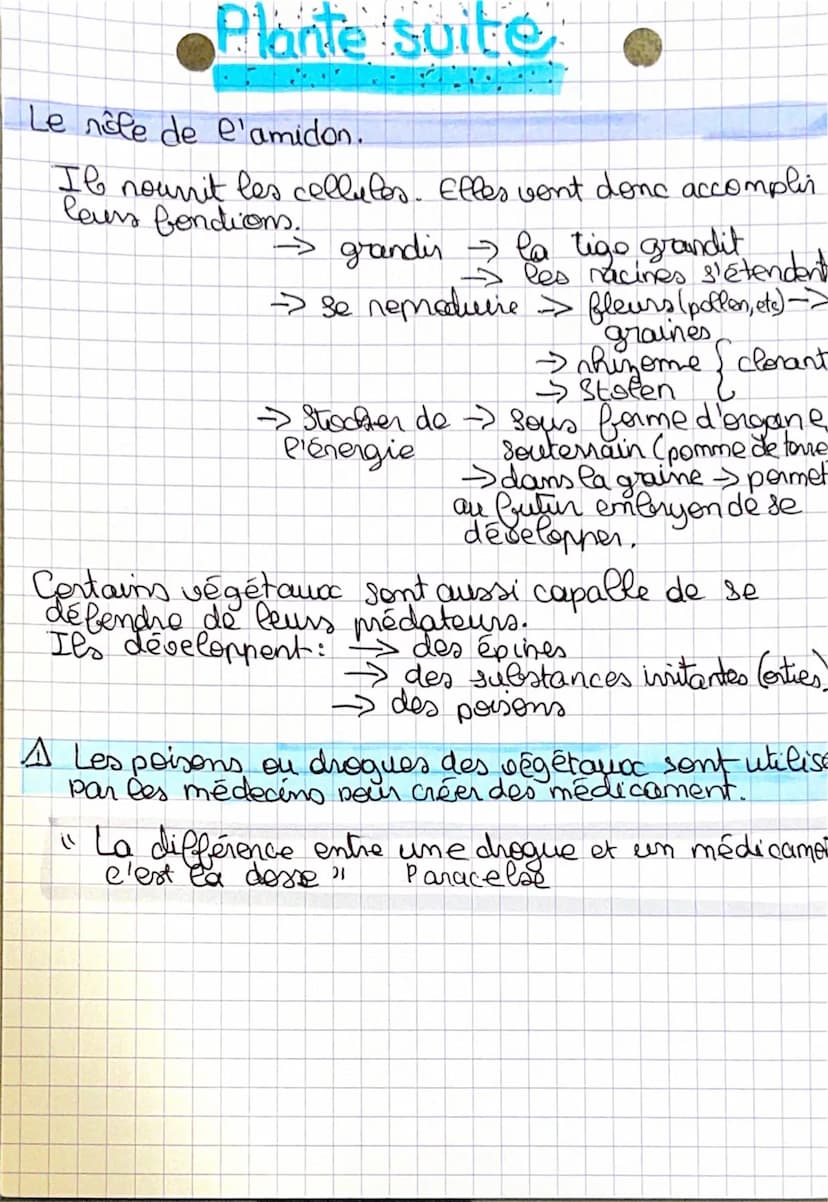 Plante suite
Le rôle de l'amidon.
Il nourrit les cellules. Elles vont donc accomplir
leurs fonctions.
→ grandir → la tige grandit
→ les racines s'étendent
→ se reproduire → fleurs (pollen, etc) →
graines
→ rhizome { clonant
→ Stolon
→ Stocker de → sous forme d'organe
l'énergie souterrain (pomme de terre
→ dans la graine → permet
au futur embryon de se
développer.
Certains végétaux sont aussi capable de se
défendre de leurs prédateurs.
Ils développent: → des épines
→ des substances irritantes (orties)
→ des poisons
⚠ Les poisons ou drogues des végétaux sont utilisé
par les médecins pour créer des médicament.
" La différence entre une drogue et un médicame
c'est la dose " Paracelse